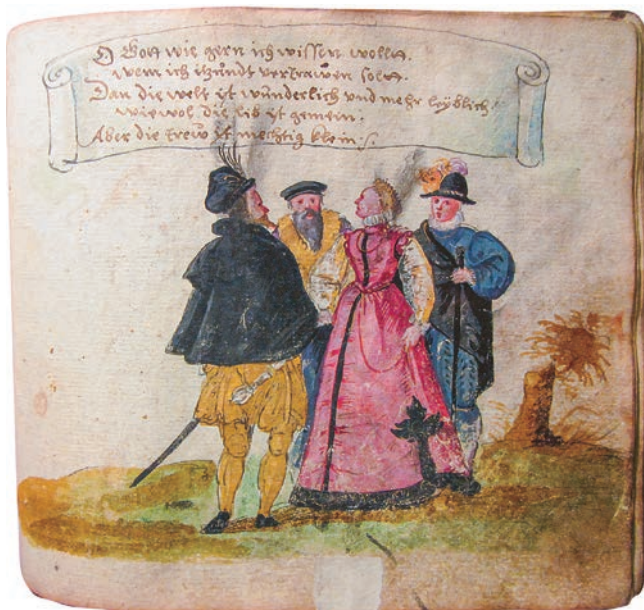 O Gott wie gern ich wissen wolltt.
wem ich itzundt vertrawen soltt.
Dan die welt ist wünderlich vnd mehr
wiewol die lib ist gemein.
Aber die trew ist mechtig klein :/: